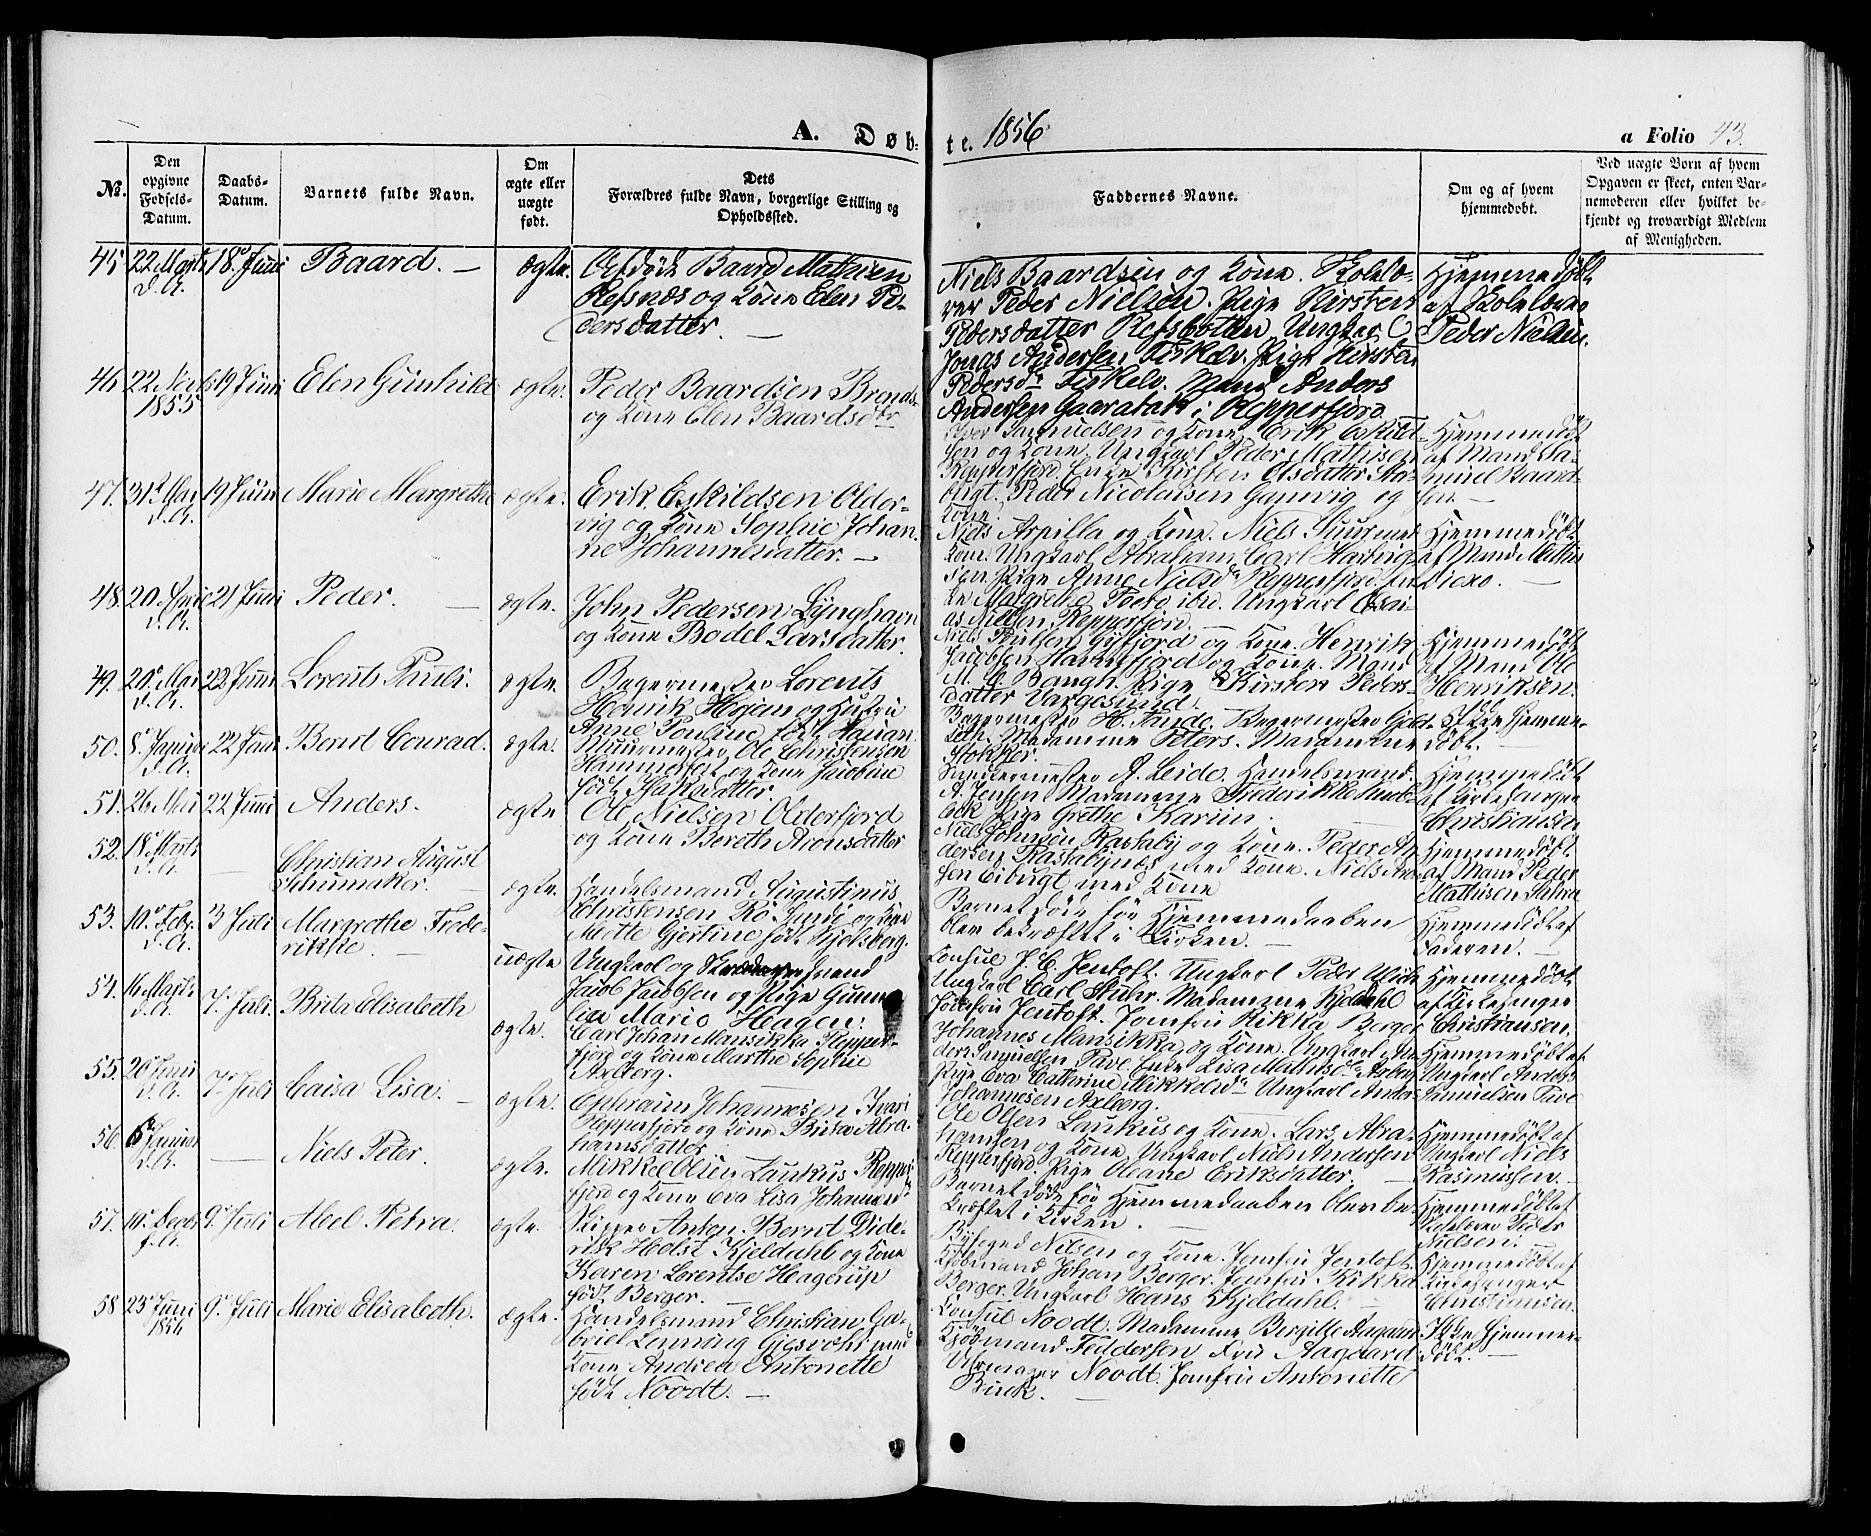 A. Døb-
te. 1856.
a Folio 43.
No.
Den opgivne Fødsels-Datum.
Daabs-Datum.
Barnets fulde Navn.
Om ægte eller uægte født.
Dets Forældres fulde Navn, borgerlige Stilling og Opholdssted.
Faddernes Navne.
Om og af hvem hjemmedøbt.
Ved uægte Børn af hvem
Opgaven er skeet, enten Bar-
nemoderen eller hvilket be-
kjendt og troværdigt Medlem
af Menigheden.
45 22 Marts d.A. 18 Juni Baard. — ægte.
Baard Mathisen
Refsnæs og Kone Elen Pe-
dersdatter. —
Niels Baardsen og Kone. Skolelæ-
rer Peder Nielsen. Pige Kirsten
Pedersdatter Refsbotten. Ungkar
Jonas Andersen Fiskelv. Pige Kirsten
Pedersdr Fiskelv. Mand Anders
Andersen i Repperfjord
Hjemmedøbt
af Skolelærer
Peder Nielsen.
46 1855 19 Juni Elen Gunhilde ægte.
Peder Baardsen
og Kone Elen Baardsdtr
Iver Samuelsen og Kone. Erik Eskild-
sen og Kone. Ungkarl Peder Mathisen
Repperfjord. Enke Kirsten Olsdatter
Peder Nicolaisen Gamvig og
Kone.
Hjemmedøbt
af Mand Sa-
muel Baard-
sen. —
47. 31 Mai d.A. 19 Juni Marie Margrethe ægte.
Erik Eskildsen Older-
vig og Kone Sophie Johan-
ne Johannesdatter. —
Niels Arpilla og Kone. Niels
Ungkarl Abraham Carl
Pige Anne Nielsdr Repperfjord.
Ungkarl Esai-
as Nielsen Repperfjord.
Hjemmedøbt
af Mand
48. 20 April d.A. 21 Juni Peder. — ægte.
John Pedersen Lynghavn
og Kone Bodel Larsdatter.
Niels og Kone. Henrik
Jacobsen Havnefjord og Kone. Mand
M. Baugh. Pige Kirsten Peders-
datter Vargesund.
Hjemmedøbt
af Mand Ole
Henriksen.
49. 20 Mai d.A. 22 Juni Lorents Pauli. ægte.
Bagermester Lorents
Henrik Hejem og Hustru
Anne Pouline født
Bagermester H. Tande.
Madamme Peters. Madamme
Stokkfer.
Ikke hjemme-
døbt.
50. 8 Januar d.A. 22 Juni Bernt Conrad. ægte.
Muurmester Ole Christensen
Hammerfest og Kone Jacobine
født
A. Leide. Handelsmand
A. Jensen. Madamme Frederikke
Pige Grethe Karine.
Hjemmedøbt
af Kirkesanger
Christiansen
51. 26 Mai 22 Juni Anders. ægte
Ole Nielsen Olderfjord
og Kone Bereth Aronsdatter
Niels Johnsen Rastaby og Kone. Peder An-
dersen Rastabynæs med Kone. Niels
sen Eibugt med Kone
Hjemmedøbt
af Mand Peder
Mathisen
52. 18 Marts d.A. — Christian August
Schumaker. — ægte.
Handelsmand Augustinus
Christensen og Kone
Mette Gjertine født Kjelsberg.
Barnet døde før Hjemmedaaben
blev bekræftet i Kirken. —
Hjemmedøbt af
Faderen.
53. 10 Febr. d.A. 3 Juli Margrethe Frede-
rikke. — uægte
Ungkarl og
Jacob Jacobsen og Pige
Marie Hagen.
Consul J. C. Jentoft. Ungkarl Peder
Ungkarl Carl Stuhr. Madamme Kjeldahl
Jomfru Jentoft. Jomfru Rikka Berger
Hjemmedøbt
af Kirkesanger
Christiansen.
54. 16 Marts d.A. 7 Juli Brita Elisabeth ægte.
Carl Johan Mansikka Repper-
fjord og Kone Marthe Sophie
Axberg.
Johannes Mansikka og Kone. Ungkarl An-
ders Samuelsen Pave. Enke Lisa Mathisdr
Pige Eva Cathrine Mikkelsdr Ungkarl Anders
Johannesen Axberg.
Hjemmedøbt af
Ungkarl Anders
Samuelsen Pave
55. 20 Juni d.A. 7 Juli Caisa Lisa. — ægte.
Ephraim Johannesen
Repperfjord og Kone Brita Abra-
hamsdatter
Ole Olsen Laukus og Kone. Lars Abra-
hamsen og Kone. Ungkarl Niels Andersen
Repperfjord. Pige Oleane Eriksdatter.
Hjemmedøbt af
Ungkarl Niels
Rasmussen. —
56. 6 Januar d.A. — Niels Peter. ægte.
Mikkel Olsen Laukus Repper-
fjord og Kone Eva Lisa
Barnet døde før Hjemmedaaben blev be-
kræftet i Kirken.
Hjemmedøbt af
Peder
Nielsen.
57. 10 Decbr f.A. 9 Juli Abel Petra ægte.
Skipper Anton Bernt Dide-
rik Holst Kjeldahl og Kone
Karen Lorentse Hagerup
født Berger.
Byfoged Nilsen og Kone. Jomfru Jentoft.
Kjøbmand Johan Berger. Jomfru Rikka
Berger. Ungkarl Hans Kjeldahl. —
Hjemmedøbt af
Kirkesanger
Christiansen.
58 25 Juni 1856 9 Juli Marie Elisabeth. ægte.
Handelsmand Christian Ga-
briel Lenning med
Kone Andrea Antonette
født Noodt. —
Consul Noodt. Madamme Bergitte Aagaard
Kjøbmand Feddersen. Aagaard
Uhrmager Noodt. Jomfru Antonette
Buck. —
Ikke hjemme-
døbt. —